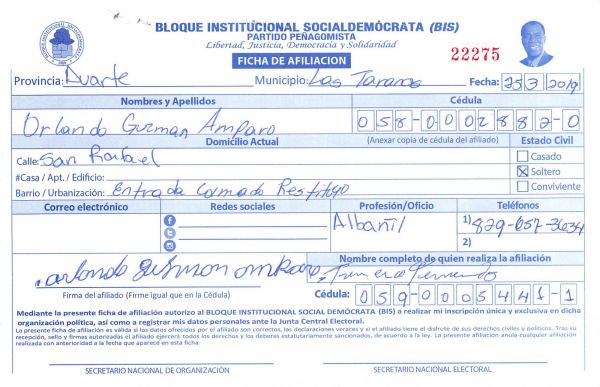 BLOQUE INSTITUCIONAL SOCIALDEMÓCRATA (BIS)
PARTIDO PEÑAGOMISTA
Libertad, Justicia, Democracia y Solidaridad
FICHA DE AFILIACION
22275
Provincia: Duarte Municipio: Las Taranas Fecha: 25 3 2019
Nombres y Apellidos Cédula
Orlando Guzman Amparo 058-0002882-0
Domicilio Actual (Anexar copia de cédula del afiliado) Estado Civil
Calle: San Rafael Casado
#Casa / Apt. / Edificio: Soltero
Barrio / Urbanización: Entrada Colmado Restitugo Conviviente
Correo electrónico Redes sociales Profesión/Oficio Teléfonos
Albañil 1) 829-657-3634
2)
Nombre completo de quien realiza la afiliación
Firma del afiliado (Firme igual que en la Cédula) Cédula: 059-0005441-1
Mediante la presente ficha de afiliación autorizo al BLOQUE INSTITUCIONAL SOCIAL DEMÓCRATA (BIS) a realizar mi inscripción única y exclusiva en dicha
organización política, así como a registrar mis datos personales ante la Junta Central Electoral.
La presente ficha de afiliación es válida si los datos ofrecidos por el afiliado son correctos, las declaraciones veraces y si el afiliado tiene el disfrute de sus derechos civiles y políticos. Tras su
recepción, sello y firmas autorizadas el afiliado ejercerá todos los derechos y los deberes estatutariamente sancionados, de acuerdo a la ley. La presente afiliación anula cualquier afiliación
realizada con anterioridad a la fecha que aparece en esta ficha.
SECRETARIO NACIONAL DE ORGANIZACIÓN SECRETARIO NACIONAL ELECTORAL